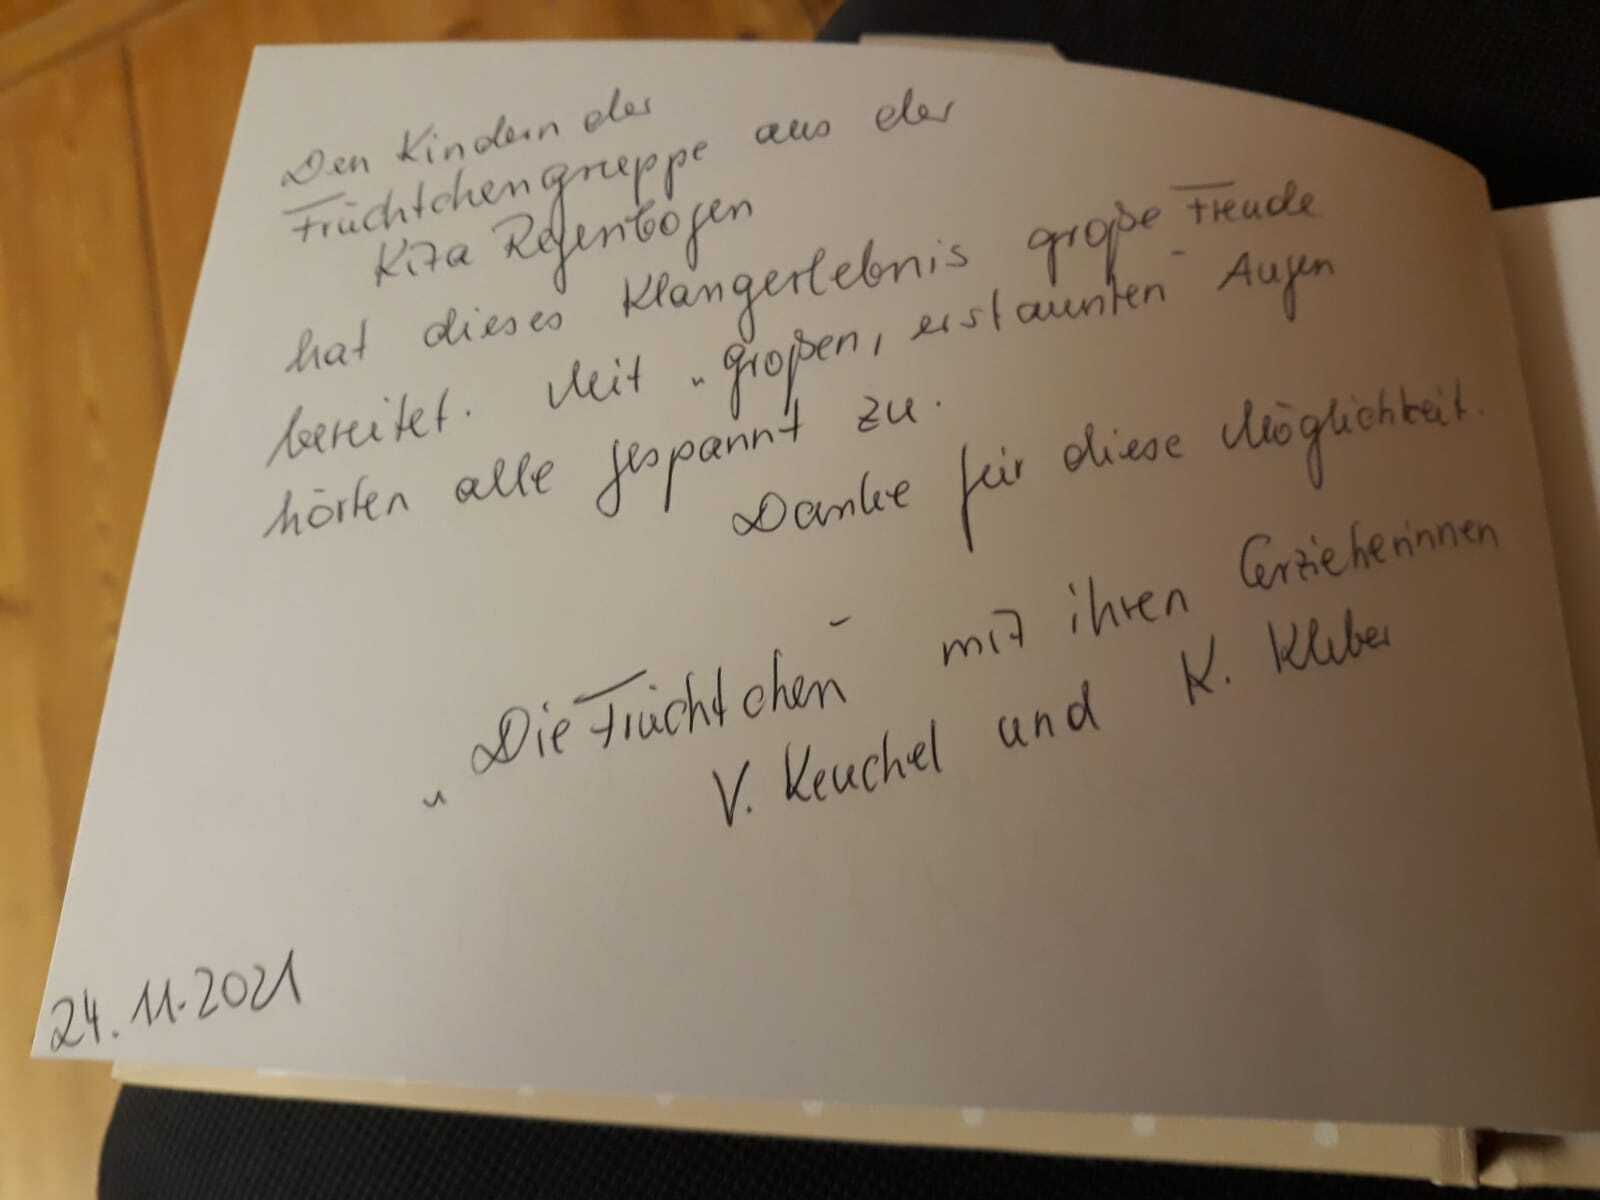 Den Kindern der
Früchtchengruppe aus der
Kita Regenbogen
hat dieses Klangerlebnis große Freude
bereitet. Mit „großen, erstaunten" Augen
hörten alle gespannt zu.
Danke für diese Möglichkeit.
„Die Früchtchen" mit ihren Erzieherinnen
V. Keuchel und K. Kleber
24.11.2021